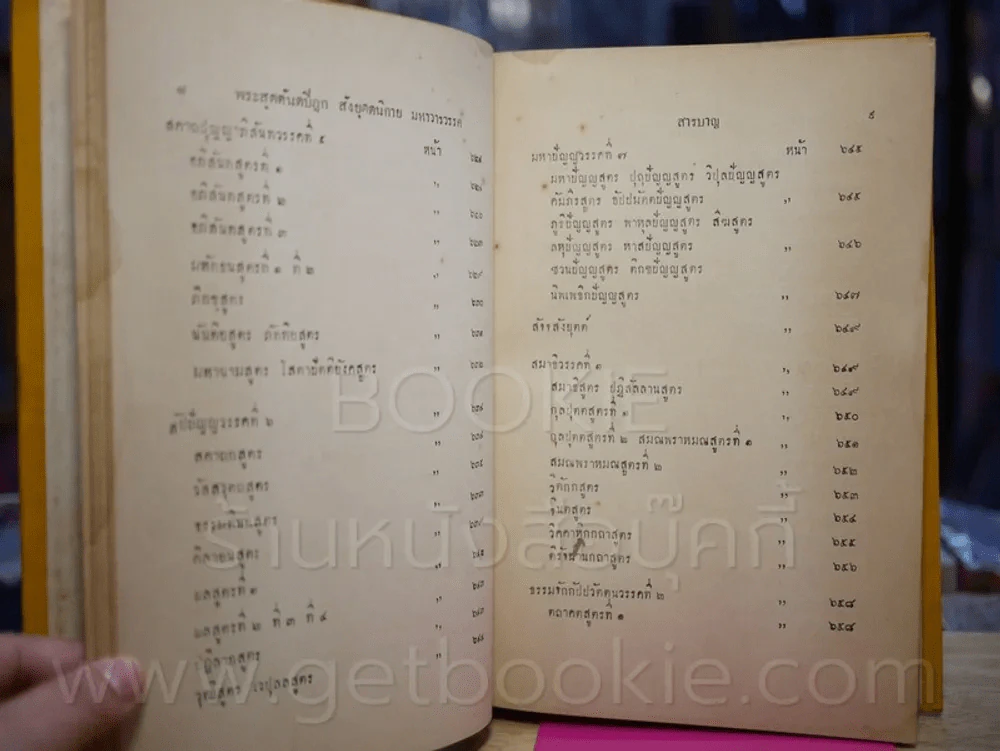 ๘ พระสุตตันตปิฎก สังยุตตนิกาย มหาวารวรรค
วรรคที่ ๕
หน้า
อภิสันทสูตรที่ ๑ ,,
อภิสันทสูตรที่ ๒ ,,
อภิสันทสูตรที่ ๓ ,,
มหัทธนสูตรที่ ๑ ที่ ๒ ,,
ภิกขุสูตร ,,
นันทิยสูตร ภัททิยสูตร ,,
มหานามสูตร โสตาปัตติยังคสูตร ,,
สัปปัญญวรรคที่ ๖ ,,
สคาถกสูตร ,,
วัสสวุตถสูตร ,,
ธรรมทินนสูตร ,,
คิลายนสูตร ,,
ผลสูตรที่ ๑ ,,
ผลสูตรที่ ๒ ที่ ๓ ที่ ๔ ,,
ปฏิลาภสูตร ,,
วุฒิสูตร เวปุลลสูตร
สารบาญ ๙
มหาปัญญวรรคที่ ๗ หน้า ๖๔๕
มหาปัญญสูตร ปุถุปัญญสูตร วิปุลปัญญสูตร
คัมภีรสูตร อัปปมัตตปัญญสูตร ,, ๖๔๕
ภูริปัญญสูตร พาหุลปัญญสูตร สีฆสูตร
ลหุปัญญสูตร หาสปัญญสูตร ,, ๖๔๖
ชวนปัญญสูตร ติกขปัญญสูตร
นิพเพธิกปัญญสูตร ,, ๖๔๗
สัจจสังยุตต์ ,, ๖๔๙
สมาธิวรรคที่ ๑ ,, ๖๔๙
สมาธิสูตร ปฏิสัลลานสูตร ,, ๖๔๙
กุลปุตตสูตรที่ ๑ ,, ๖๕๐
กุลปุตตสูตรที่ ๒ สมณพราหมณสูตรที่ ๑ ,, ๖๕๑
สมณพราหมณสูตรที่ ๒ ,, ๖๕๒
วิตักกสูตร ,, ๖๕๓
จินตสูตร ,, ๖๕๔
วิคคาหิกกถาสูตร ,, ๖๕๕
ติรัจฉานกถาสูตร ,, ๖๕๖
ธรรมจักกัปปวัตตนวรรคที่ ๒ ,, ๖๕๘
ตถาคตสูตรที่ ๑ ,, ๖๕๘
BOOKIE
ร้านหนังสือบุ๊คกี้
www.getbookie.com